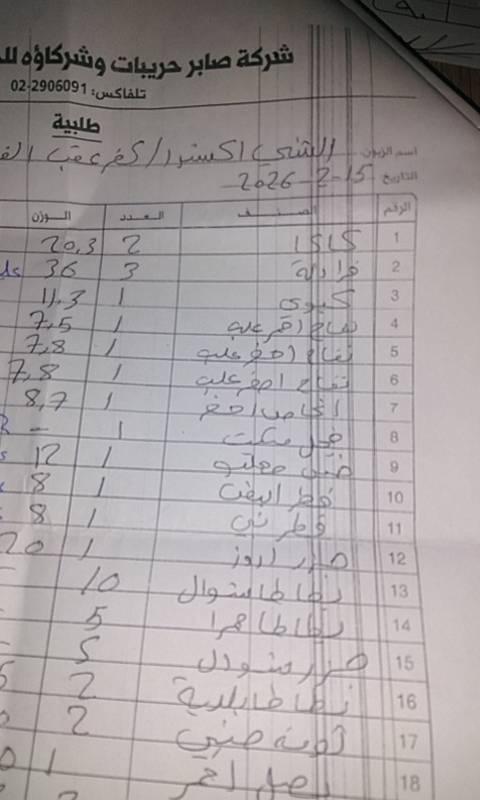 شركة صابر حريبات وشركاؤه
تلفاكس: 02-2906091
طلبية
اسم الزبون: الشني اكسترا / كفر عقب
التاريخ: 15-2-2026
الرقم الصنف العدد الوزن
1 كاكا 2 20,3
2 فراولة 3 36
3 كيوي 1 11.3
4 تفاح احمر علبه 1 7,5
5 تفاح اخضر علبه 1 7,8
6 تفاح اصفر علبه 1 7,8
7 اجاص اخضر 1 8,7
8 1 -
9 1 12
10 فطر ابيض 1 8
11 فطر بني 1 8
12 1 20
13 بطاطا شوال 10
14 بطاطا حمرا 5
15 شوال 5
16 بطاطا بلدية 2
17 ثومة صيني 2
18 بصل احمر 1